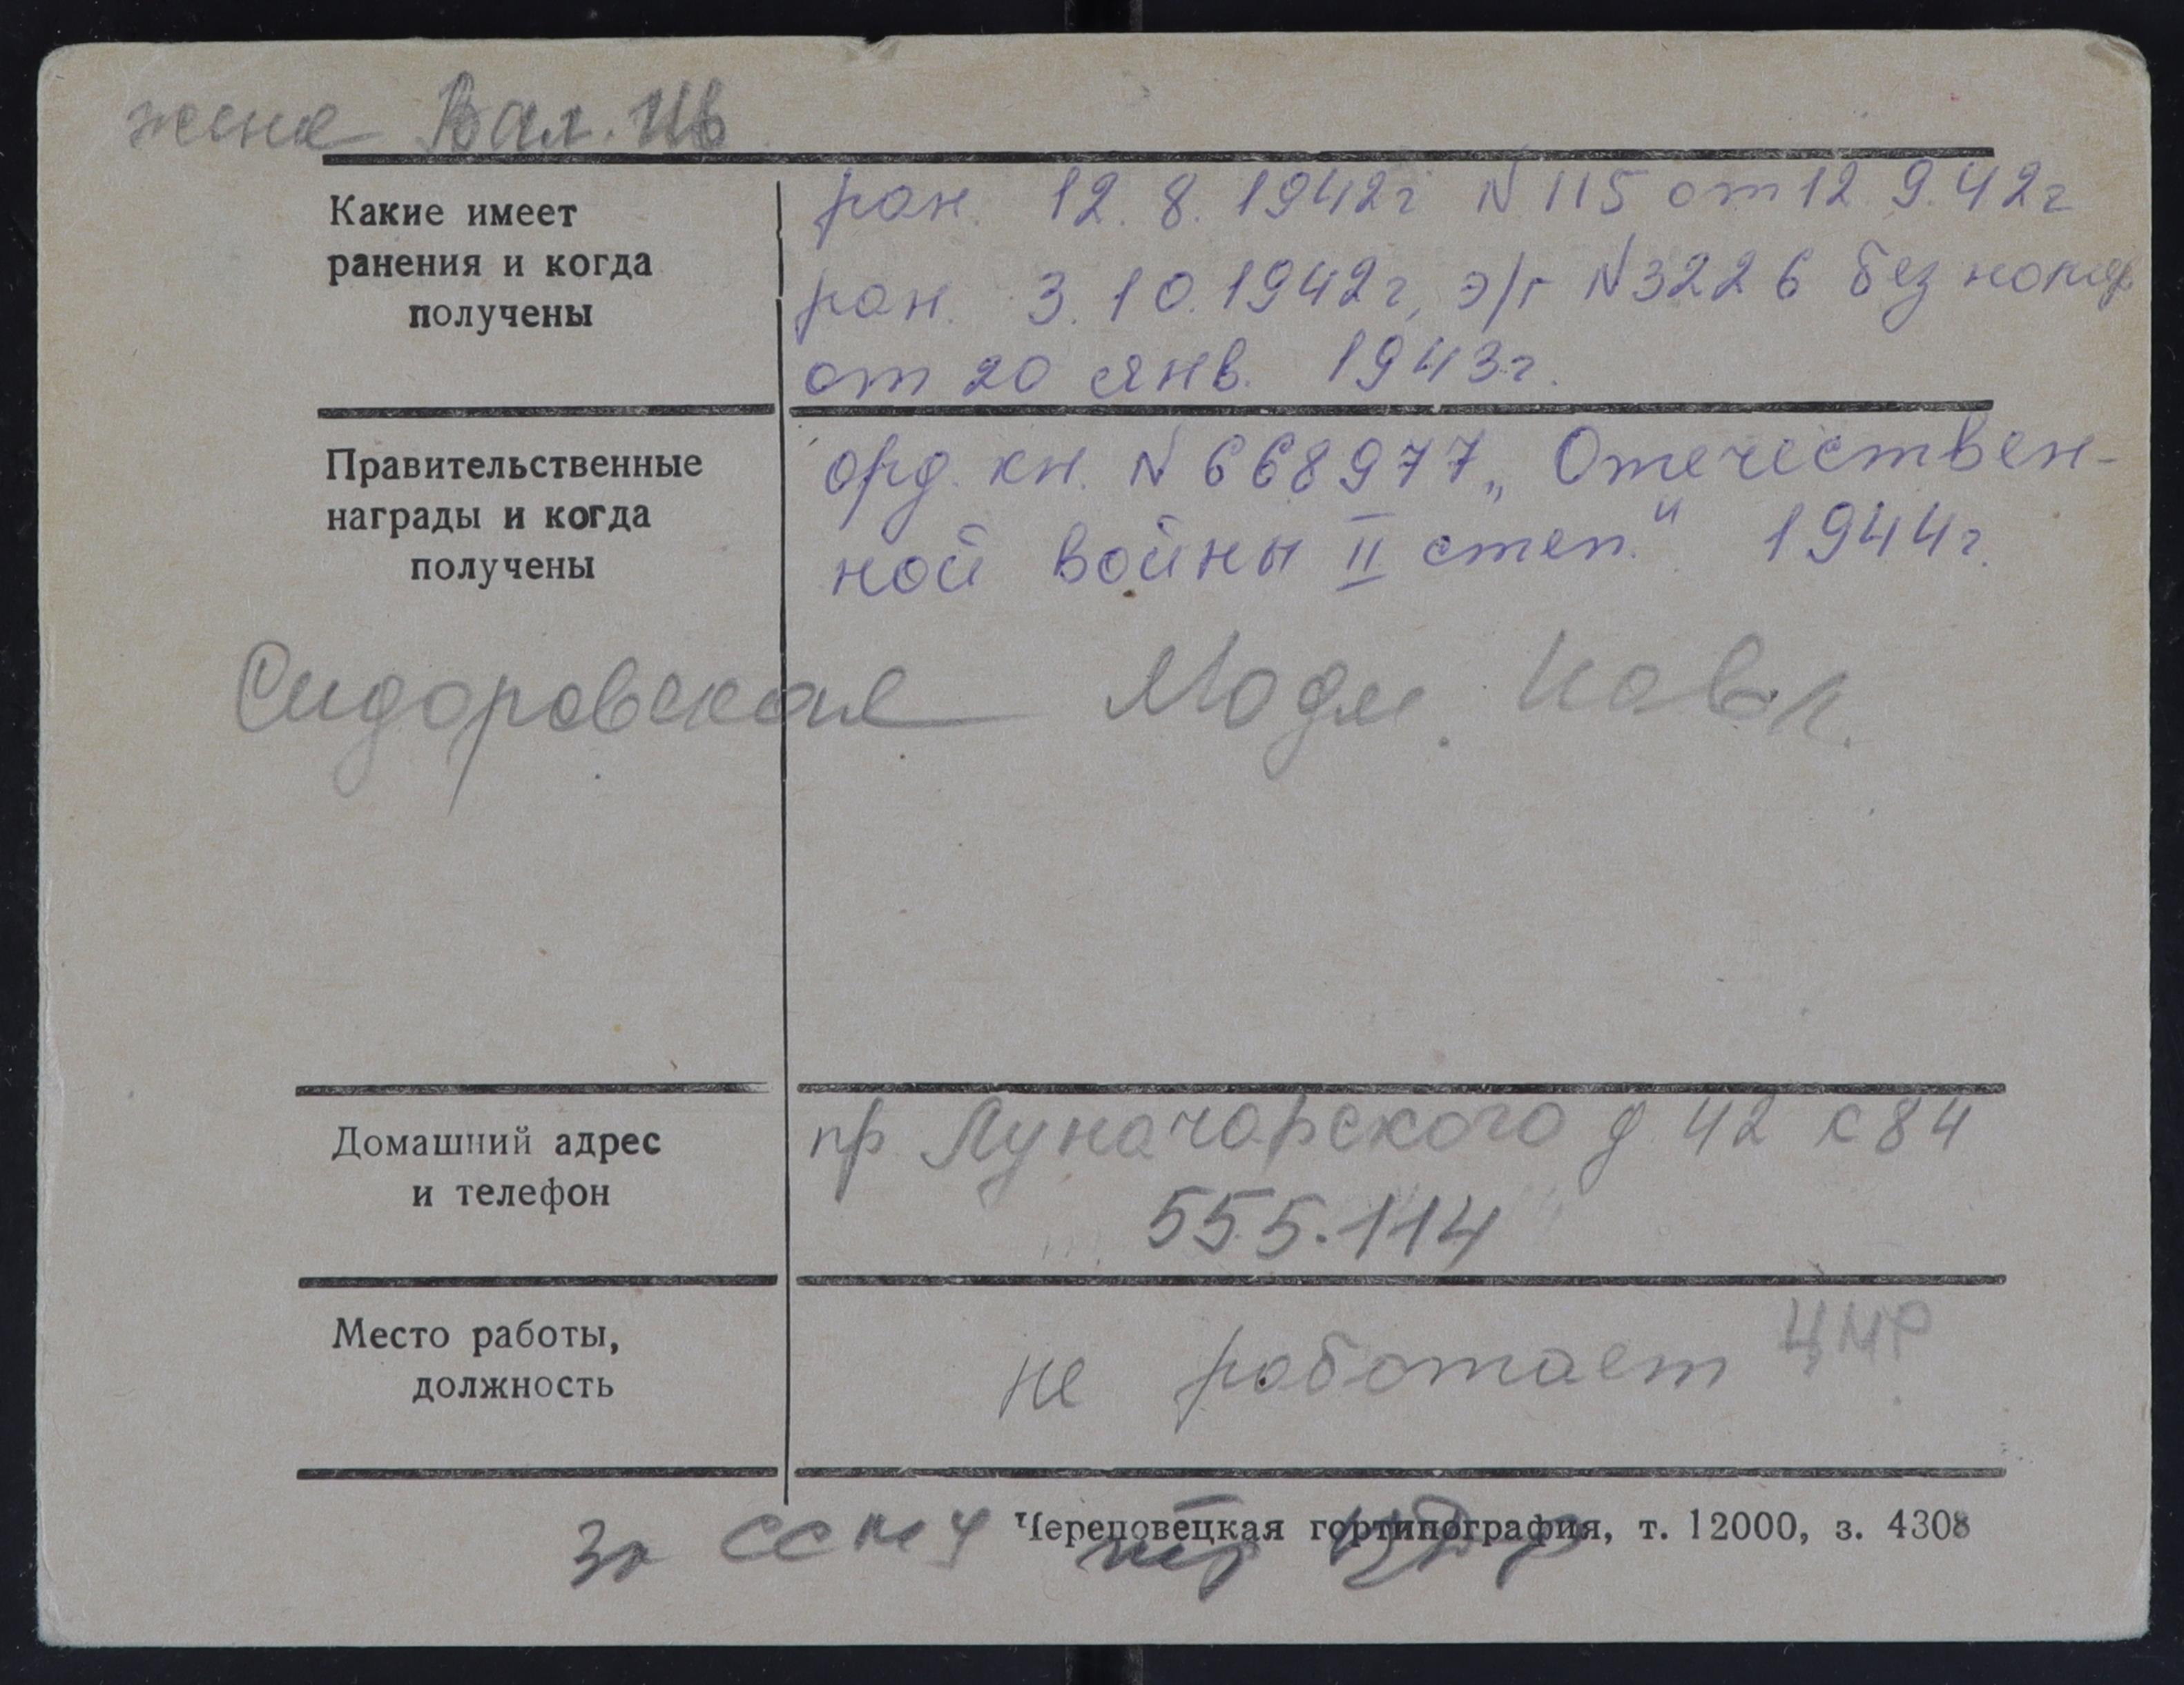 жена Вал. Ив
Какие имеет
ранения и когда
получены
ран. 12. 8. 1942г N 115 от 12. 9. 42г
ран. 3. 10. 1942г, э/г N 3226 без номер
от 20 янв. 1943г.
Правительственные
награды и когда
получены
орд. кн. N 668977 „Отечествен-
ной войны II степ." 1944г.
Сидоровская
Домашний адрес
и телефон
пр Луначарского д 42 к 84
555.114
Место работы,
должность
не работает ЦМР
Череповецкая гортипография, т. 12000, з. 4308